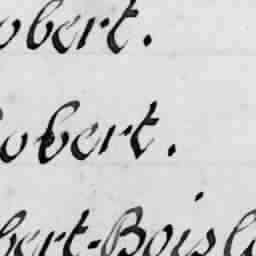 obert.
obert.
bert-Boisl